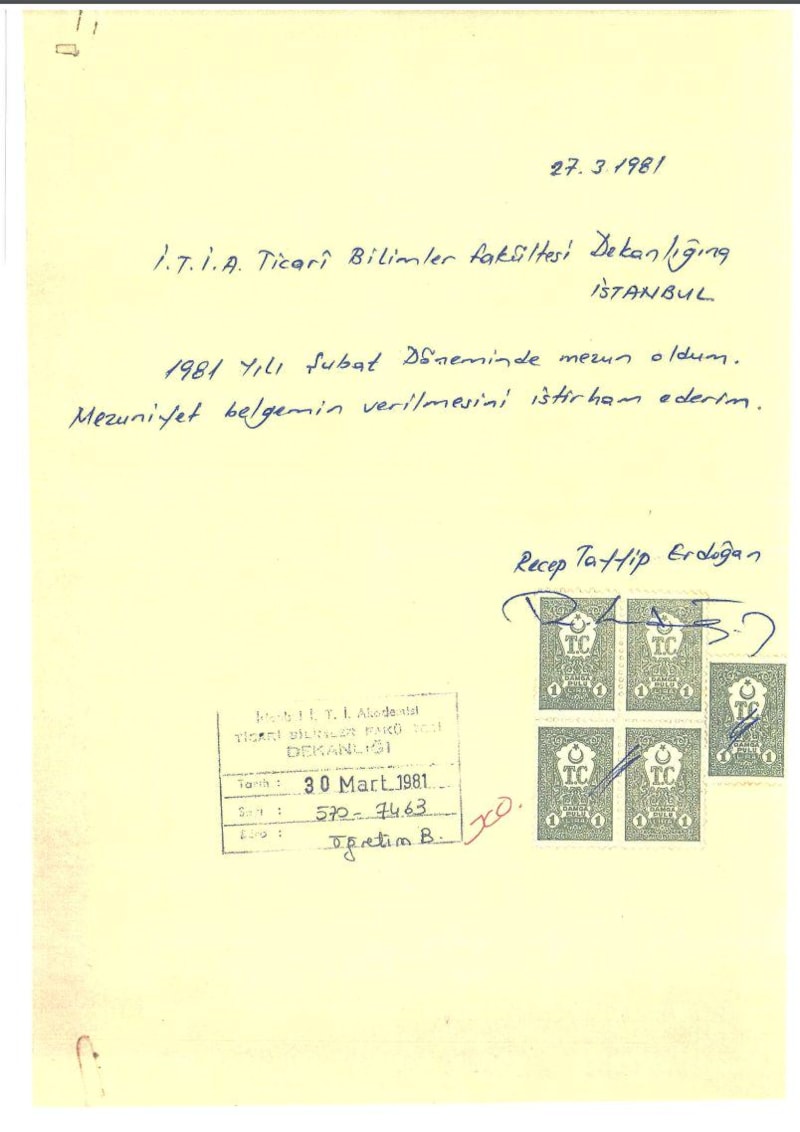 27.3.1981
İ.T.İ.A. Ticarî Bilimler Fakültesi Dekanlığına
İSTANBUL
1981 Yılı Şubat Döneminde mezun oldum.
Mezuniyet belgemin verilmesini istirham ederim.
Recep Tayyip Erdoğan
T.C
DAMGA
PULU
LİRA
1 1
T.C
DAMGA
PULU
LİRA
1 1
T.C
DAMGA
PULU
LİRA
1 1
T.C
DAMGA
PULU
LİRA
1 1
T.C
DAMGA
PULU
LİRA
1 1
İ. T. İ. Akademisi
TİCARİ BİLİMLER
DEKANLIĞI
Tarih : 30 Mart 1981
Sayı : 570-7463
Büro : Öğretim B.